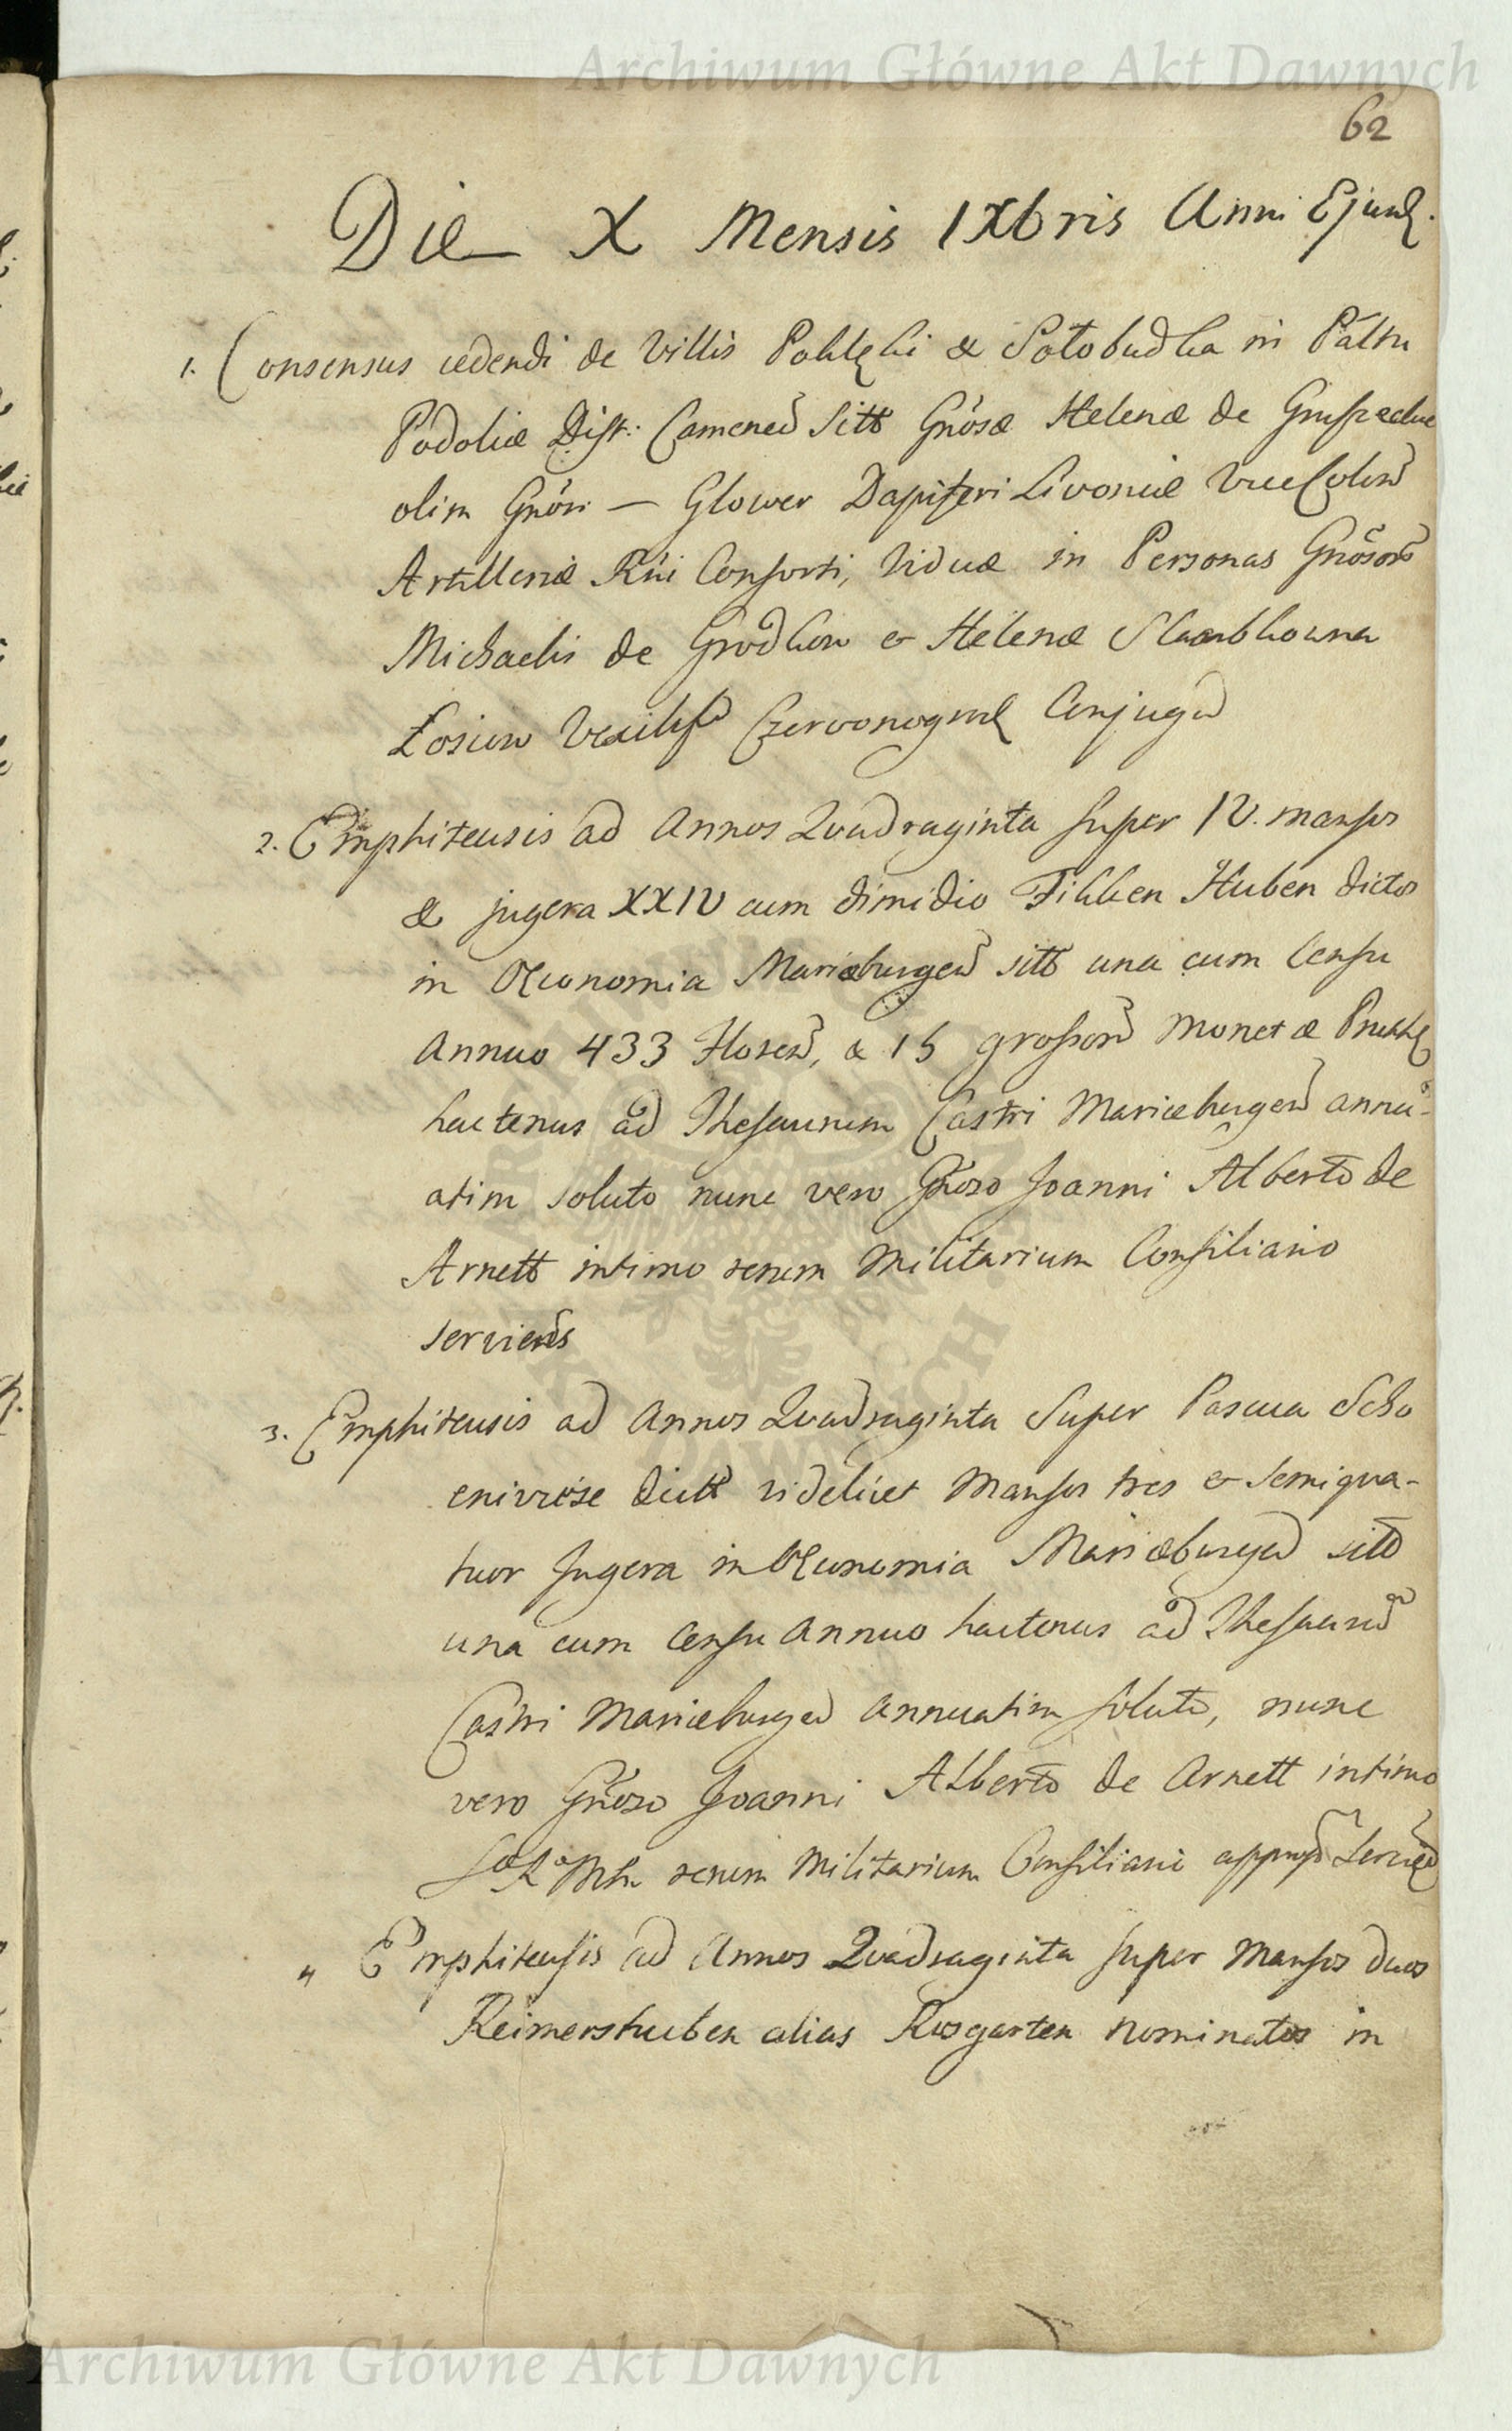 Archiwum Główne Akt Dawnych
62
Die X Mensis IXbris Anni Ejusd.
1. Consensus cedendi de Villis & Sołobudka in Pałtu
Podoliæ Distr: Camenec Sitt Gñosæ Helenæ de
olim Gñosi — Glower Dapiferi Livoniæ Vice
Artilleriæ Rñi Consorti, Viduæ in Personas Gñosor
Michaelis de Grodkow & Helenæ
Łosiow Vexillif Conjugu
2. Emphiteusis ad Annos Quadraginta super IV. mansos
& jugera XXIV cum dimidio Fikken Huben dictos
in Œconomia Mariæburgen sitt una cum Censu
Annuo 433 Floren, & 15 grossor Monetæ
hactenus ad Thesaurum Castri Mariæburgen annu-
atim soluto nunc vero Gñoso Joanni Alberto de
Arnett intimo rerum Militarium Consiliario
servien
3. Emphiteusis ad Annos Quadraginta Super Pascua Scho
enwiese dict videlicet Mansos tres & semiqua-
tuor Jugera in Œconomia Mariæburgen sitt
una cum Censu Annuo hactenus ad Thesaur
Castri Mariæburgen Annuatim solut, nunc
vero Gñoso Joanni Alberto de Arnett intimo
rerum Militarium Consiliario
4 Emphiteusis ad Annos Quadraginta super Mansos duos
Reimershuben alias Rosgarten nominatos in
Archiwum Główne Akt Dawnych